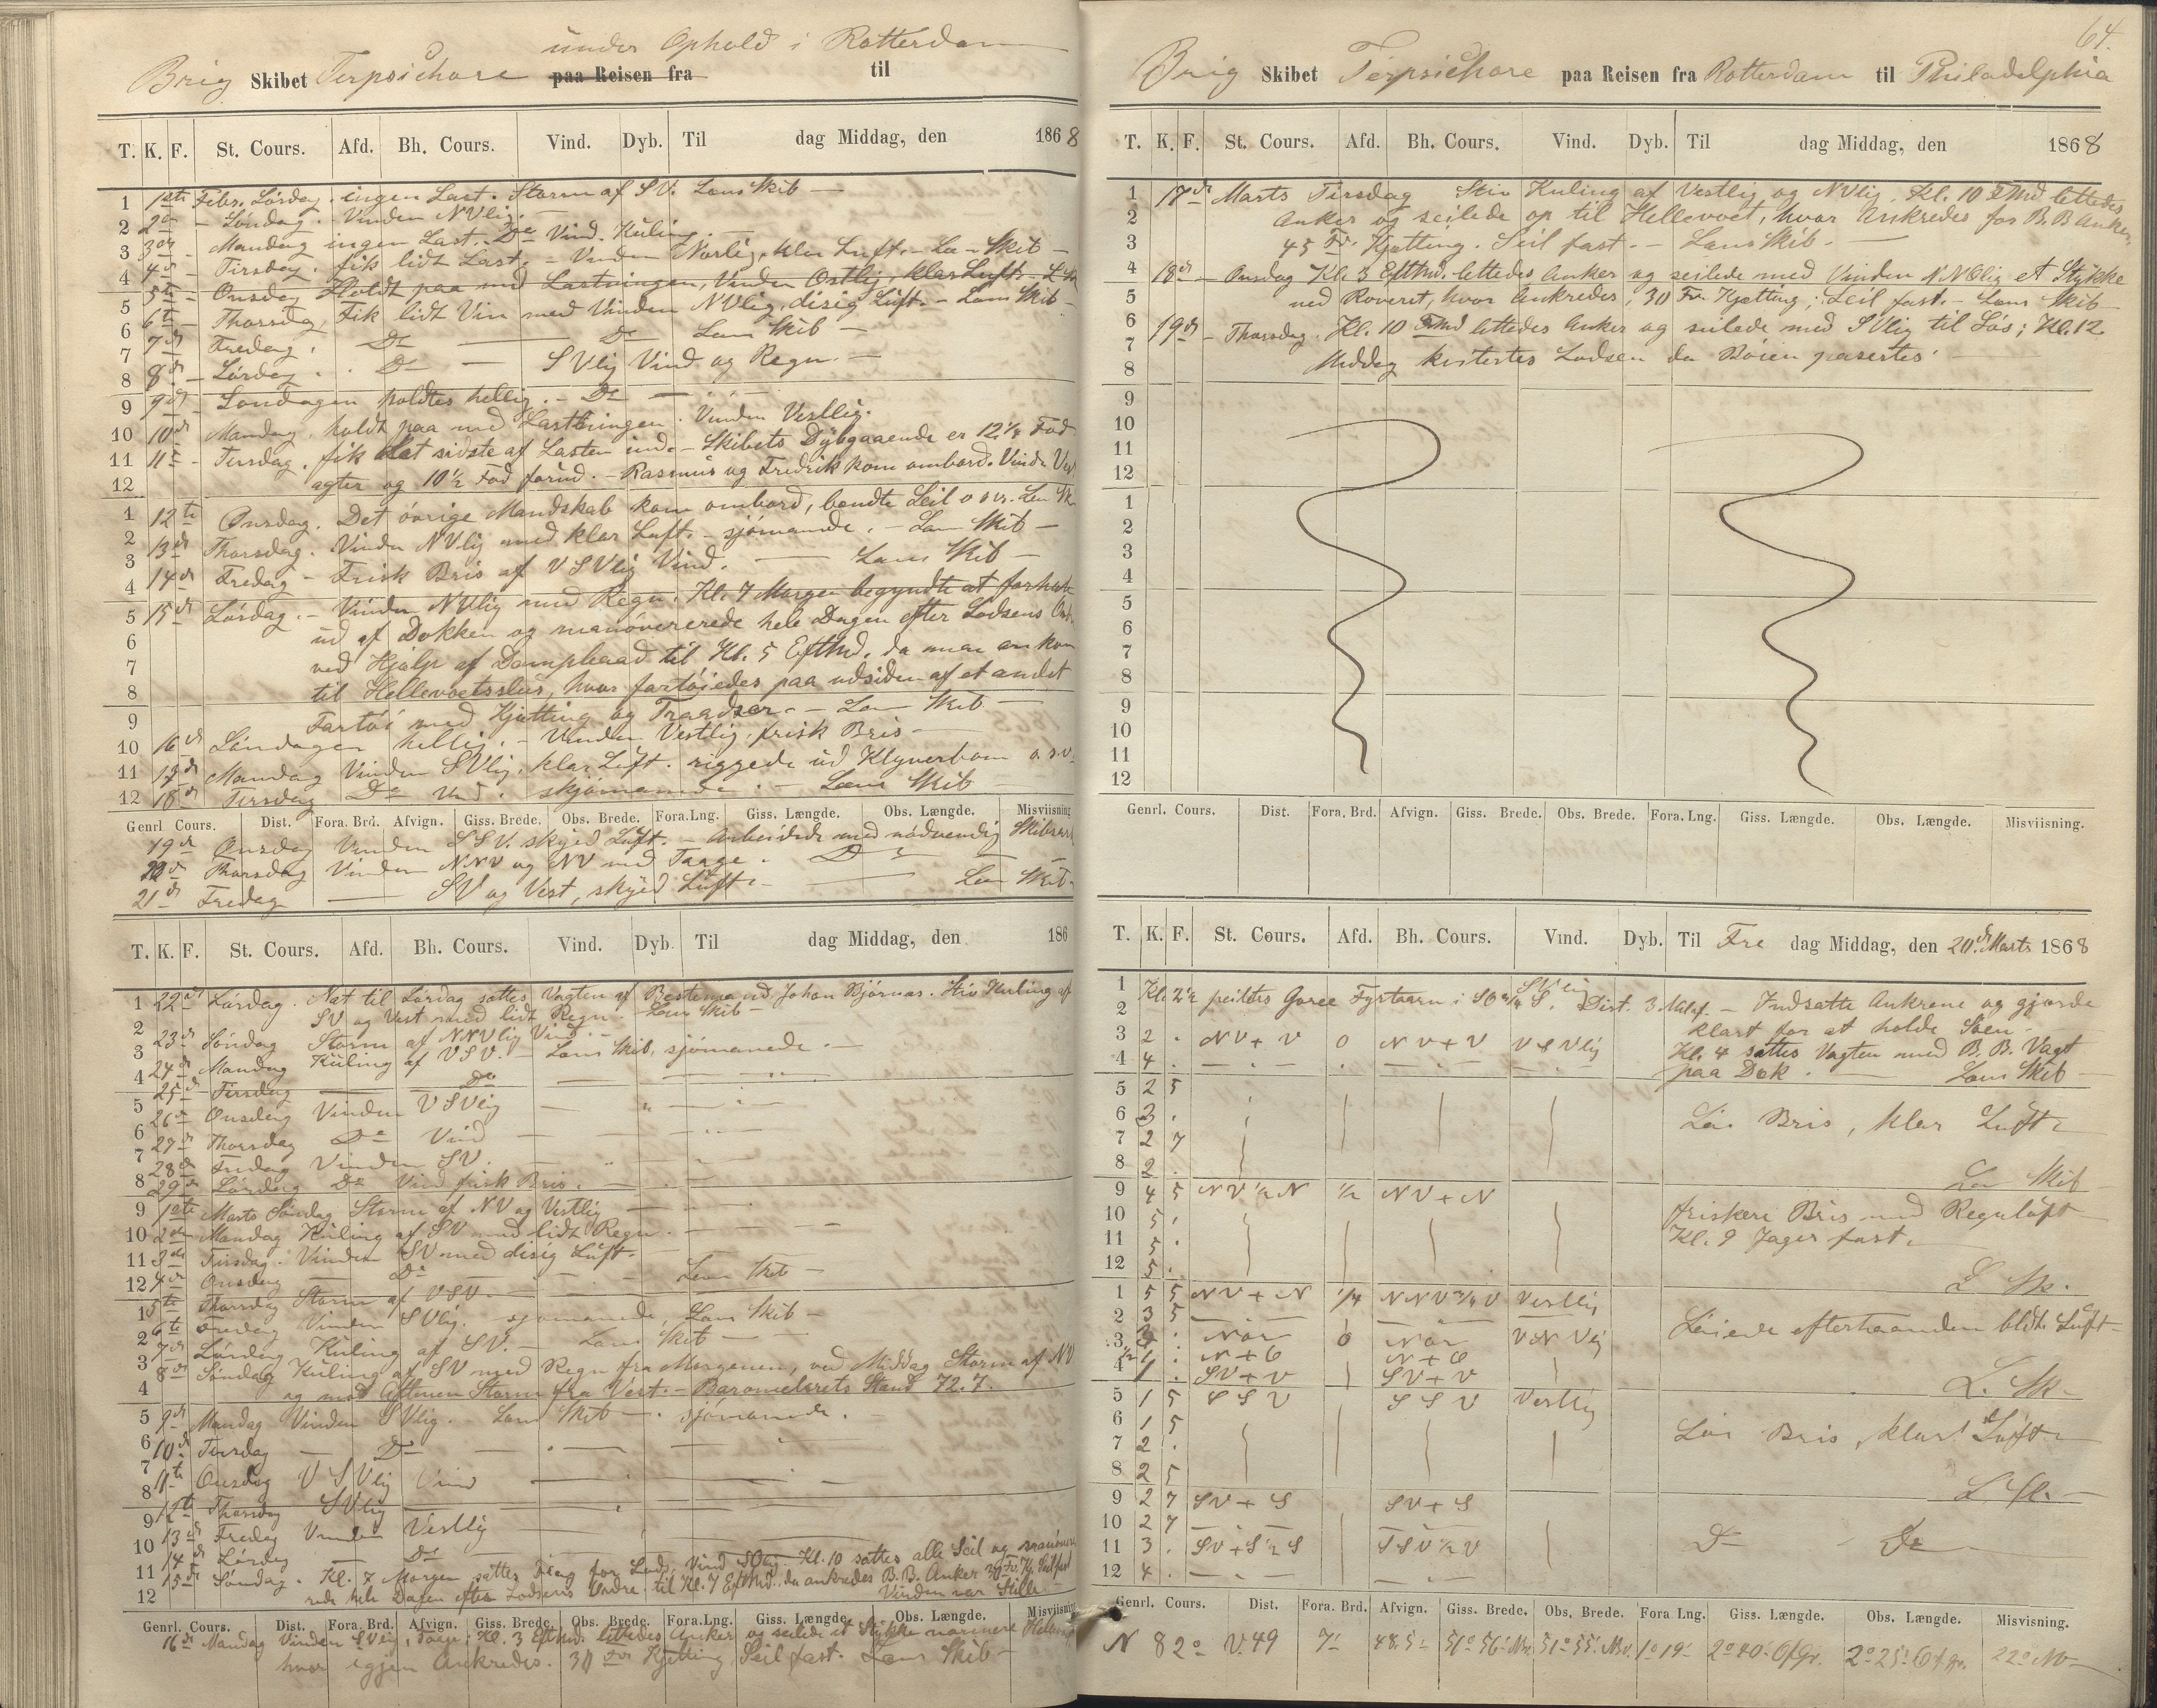 under Ophold i Rotterdam
Brig Skibet Terpsichore paa Reisen fra til
T. K. F. St. Cours. Afd. Bh. Cours. Vind. Dyb. Til dag Middag, den 1868
1 1ste Febr. Lørdag. ingen Last. Storm af SV. Lens Skib —
2 2den - Søndag. Vinden NVlig. —
3 3die - Mandag ingen Last. Do Vind. Kuling. —
4 4de - Tirsdag. fik lidt Last. - Vinden Norlig, klar Luft. - Len Skib —
5te - Onsdag Holdt paa med Lastningen, Vinden Ostlig, klar Luft. - L. Sk
5 6te - Thorsdag, Fik lidt Vin med Vinden NVlig, disig Luft. - Lens Skib —
6 7de Fredag. Do — Do Lens Skib —
7 8de - Lørdag. Do — SVlig Vind og Regn. —
8
9 9de - Søndagen holdtes hellig. - Do —
10 10de Mandag. holdt paa med Lastningen. Vinden Vestlig.
11 11te - Tirsdag. fik det sidste af Lasten ind. - Skibets Dybgaaende er 12½ Fod
12 agter og 10½ Fod forud. - Rasmus og Fredrik kom ombord. Vinden Vest
1 12te Onsdag. Det øvrige Mandskab kom ombord, bendte Seil o.s.v. Len Sk
2 13de Thorsdag. Vinden NVlig med klar Luft. - sjømande. - Lens Skib —
3 14de Fredag - Frisk Bris af VSVlig Vind. — Lens Skib —
4
5 15de Lørdag. - Vinden NVlig med Regn. Kl. 7 Morgen begyndte at forhale
6 ud af Dokken og manøvrerede hele Dagen efter Lodsens Ord.
7 ved Hjælp af Dampbaad til Kl. 5 EftMd. da man ankom
8 til Hellevoetsslus, hvor fortøiedes paa udsiden af et andet
9 Fartøi med Kjætting og Traadser. - Lens Skib —
10 16de Søndagen hellig. - Vinden Vestlig, frisk Bris —
11 17de Mandag Vinden SVlig, klar Luft. riggede ud Klyverbom o.s.v.
12 18de Tirsdag Do Vind. skjømande. - Lens Skib —
Genrl Cours. Dist. Fora. Brd. Afvign. Giss. Brede. Obs. Brede. Fora.Lng. Giss. Længde. Obs. Længde. Misviisning
19de Onsdag Vinden SSV. skyed Luft. - Arbeidede med nødvendig Skibsarb
20de Thorsdag Vinden NNV og NV med Taage. Do —
21de Fredag — SV og Vest, skyed Luft. — Len Skib.
T. K. F. St. Cours. Afd. Bh. Cours. Vind. Dyb. Til dag Middag, den 186
1 22de Lørdag. Nat til Lørdag sattes Vagten af Bestemand Johan Bjørnas. Stiv Kuling af
2 SV og Vest med lidt Regn. Lens Skib —
3 23de Søndag Storm af NNVlig Vind. —
4 24de Mandag Kuling af VSV. - Lens Skib, sjømanede. —
25de Tirsdag — Do —
5 26de Onsdag Vinden VSVlig —
6 27de Thorsdag Do Vind —
7 28de Fredag Vinden SV. —
8 29de Lørdag Do Vind frisk Bris. —
9 1ste Marts Søndag Storm af NV og Vestlig —
10 2den Mandag Kuling af SV med lidt Regn. —
11 3die Tirsdag. Vinden SV med disig Luft. —
12 4de Onsdag — Do — Lens Skib —
1 5te Thorsdag Storm af VSV. —
2 6te Fredag Vinden SVlig. sjømanede, Lens Skib —
3 7de Lørdag Kuling af SV. - Lens Skib —
8de Søndag Kuling af SV med Regn fra Morgenen, ved Middag Storm af NV
4 og mod Aftenen Storm fra Vest. - Barometerets Stand 72.7.
5 9de Mandag Vinden SVlig. - Lens Skib —. sjømanede. —
6 10de Tirsdag — Do —
7 11te Onsdag VSVlig Vind —
8
9 12te Thorsdag SVlig —
10 13de Fredag Vinden Vestlig —
11 14de Lørdag — Do —
12 15de Søndag. Kl. 7 Morgen sattes Flag for Lods, Vind SOlig. Kl. 10 sattes alle Seil og manøvre
rede hele Dagen efter Lodsens Ordre til Kl. 7 EftMd. da ankredes B.B. Anker 30 Fv. Kj. Seil fast
Vinden var Stille —
Genrl. Cours. Dist. Fora. Brd. Afvign. Giss. Brede. Obs. Brede. Fora.Lng. Giss. Længde. Obs. Længde. Misviisning
16de Mandag Vinden SVlig, Kl. 3 EftMd. lettedes Anker og seilede et Stykke nærmere
hvor igjen Ankredes. 30 Fv Kjetting Seil fast. Lens Skib —
64.
Brig Skibet Terpsichore paa Reisen fra Rotterdam til Philadelphia
T. K. F. St. Cours. Afd. Bh. Cours. Vind. Dyb. Til dag Middag, den 1868
1 17de Marts Tirsdag Stiv Kuling af Vestlig og NVlig. Kl. 10 lettedes
2 Anker og seilede op til Hellevoet, hvor Ankredes for B.B Anker,
3 45 Fv. Kjætting. Seil fast. - Lens Skib. —
4 18de - Onsdag Kl. 3 EftMd. lettedes Anker og seilede med Vinden NNOlig et Stykke
5 ned Roveret, hvor Ankredes; 30 Fv. Kjætting; Seil fast. - Lens Skib
6 19de - Thorsdag. Kl. 10 FMd lettedes Anker og seilede med SVlig til Søs; Kl. 12
7 Middag kvitertes Lodsen da Bøien paseertes. —
8
9
10
11
12
1
2
3
4
5
6
7
8
9
10
11
12
Genrl. Cours. Dist. Fora. Brd. Afvign. Giss. Brede. Obs. Brede. Fora. Lng. Giss. Længde. Obs. Længde. Misviisning.
T. K. F. St. Cours. Afd. Bh. Cours. Vind. Dyb. Til Fre dag Middag, den 20de Marts 1868
1 Kl. 2½ peiltes Goree Fyrtaarn i SO¾S. SVlig Dist. 3 Mil af. - Indsatte Ankrene og gjorde
2 klart for at holde Søen. —
3 2 . NV+V 0 NV+V VSVlig Kl. 4 sattes Vagten med B.B. Vagt
4 4 . — . — paa Dæk. — Lens Skib —
5 2 5
6 3 . Løi Bris, klar Luft.
7 2 7
8 2 . Len Skib
9 4 5 NV½N ½ NV+N friskere Bris med Regnluft
10 5 . Kl. 9 Jager fast.
11 5 .
12 5 . L Sk.
1 5 5 NV+N ¼ NNV¾V Vestlig
2 3 5 Løiede efterhaanden bldt. Luft
3 3 . Nor 0 Nor VNVlig
½ 1 . N+O N+O
4 1 . SV+V SV+V L. Sk —
5 1 5 SSV SSV Vestlig
6 1 5 Løi Bris, klar Luft
7 2 .
8 2 5 L Sk. —
9 2 7 SV+S SV+S
10 2 7 —
11 3 . SV+S½S SSV½V Do Do
12 4 . — . —
Genrl. Cours. Dist. Fora. Brd. Afvign. Giss. Brede. Obs. Brede. Fora Lng. Giss. Længde. Obs. Længde. Misvisning.
N 82° V. 49 7' 48.5 51° 56' 51° 55' 1° 19' 2° 40' 2° 25' 22° NV